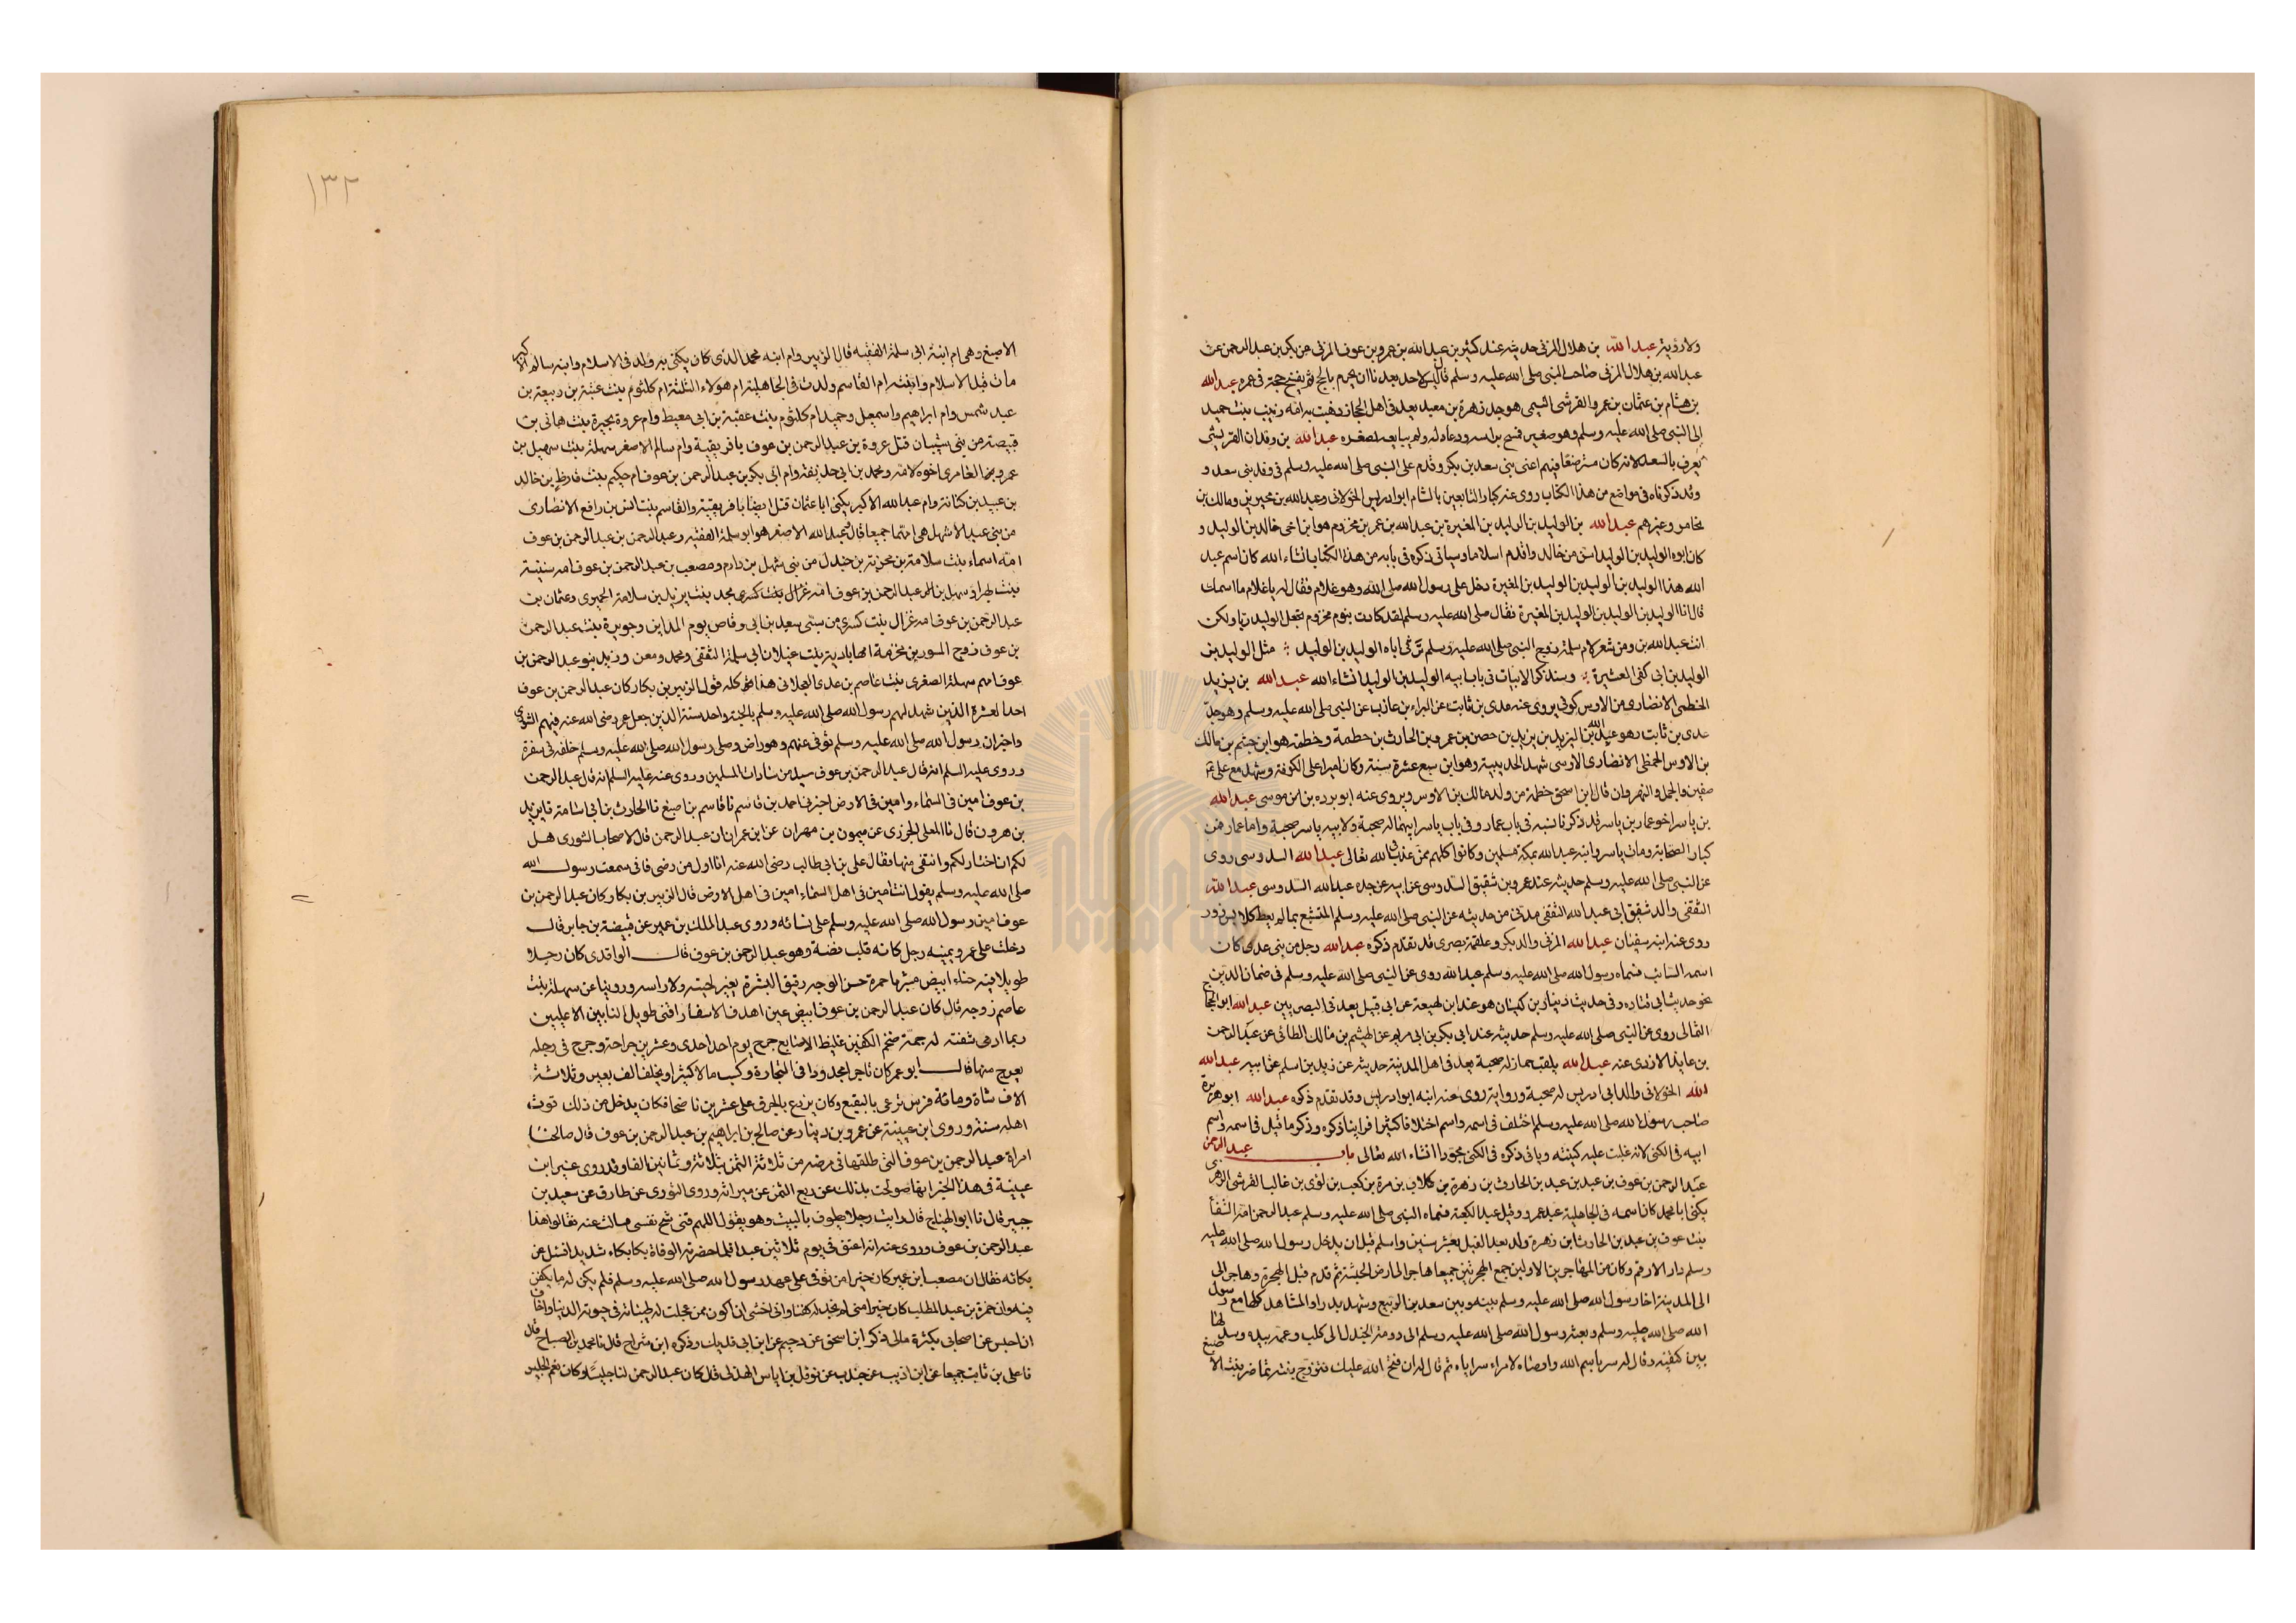 ولا رؤية عبد الله بن هلال المزني حديثه عند كثير بن عبد الله بن عمرو بن عوف المزني عن بكر بن عبد الرحمن عن
عبد الله بن هلال المزني صاحب النبي صلى الله عليه وسلم قال ليس لاحد بعدنا ان يحرم بالحج ثم يفسخ حجة في عمرة عبد الله
بن هشام بن عثمان بن عمرو القرشي التيمي هو جد زهرة بن معبد يعد في اهل الحجاز ذهبت به امه زينب بنت حميد
إلى النبي صلى الله عليه وسلم وهو صغير فمسح براسه ودعا له ولم يبايعه لصغره عبد الله بن وقدان القرشي
يعرف بالسعد لانه كان مسترضعا فيهم اعني بني سعد بن بكر وقدم على النبي صلى الله عليه وسلم في وفد بني سعد و
وقد ذكرناه في مواضع من هذا الكتاب روى عنه كبار التابعين بالشام ابو ادريس الخولاني وعبد الله بن محيريز ومالك بن
يخامر وغيرهم عبد الله بن الوليد بن الوليد بن المغيرة بن عبد الله بن عمر بن مخزوم هو ابن اخي خالد بن الوليد و
كان ابوه الوليد بن الوليد اسن من خالد واقدم اسلاما وسياتي ذكره في بابه من هذا الكتاب انشاء الله كان اسم عبد
الله هذا الوليد بن الوليد بن الوليد بن المغيرة دخل على رسول الله صلى الله وهو غلام فقال له ياغلام ما اسمك
قال انا الوليد بن الوليد بن الوليد بن المغيرة فقال صلى الله عليه وسلم لقد كادت بنو مخزوم تجعل الوليد ربا ولكن
انت عبد الله بن ومن شعر لام سلمة زوج النبي صلى الله عليه وسلم ترثي اباه الوليد بن الوليد مثل الوليد بن
الوليد بن ابي كفى العشيرة وسنذكر الابيات في باب ابيه الوليد بن الوليد انشاء الله عبد الله بن يزيد
الخطمي الانصاري من الاوس كوفي يروى عنه عدي بن ثابت عن البراء بن عازب عن النبي صلى الله عليه وسلم وهو جد
عدي بن ثابت وهو عبد الله بن اليزيد بن يزيد بن حصن بن عمرو بن الحارث بن خطمة وخطمة هو ابن جشم بن مالك
بن الاوس الخطمي الانصاري الاوسي شهد الحديبية وهو ابن سبع عشرة سنة وكان اميرا على الكوفة وشهد مع علي
صفين والجمل والنهروان قال ابن اسحق خطمة من ولد مالك بن الاوس ويروى عنه ابو برده بن ابي موسى عبد الله
بن ياسر اخو عمار بن ياسر قد ذكرنا نسبه في باب عمار وفي باب ياسر ابيهما له صحبة ولابيه ياسر صحبة واما عمار فمن
كبار الصحابة ومات ياسر وابنه عبد الله بمكة مسلمين وكانوا كلهم ممن عذب في الله تعالى عبد الله السدوسي روى
عن النبي صلى الله عليه وسلم حديثه عند عمرو بن شقيق السدوسي عن ابيه عن جده عبد الله السدوسي عبد الله
الثقفي والد شقيق ابي عبد الله الثقفي مدني من حديثه عن النبي صلى الله عليه وسلم المتشبع بما لم يعط كلابس زور
روى عنه ابنه سفينان عبد الله المزني والد بكر وعلقمة بصري قد تقدم ذكره عبد الله رجل من بني عدي كان
اسمه السائب فسماه رسول الله صلى الله عليه وسلم عبد الله روى عن النبي صلى الله عليه وسلم في ضمان الدين
نحو حديث ابي قتاده وفي حديث دينار بن كيسان هو عند ابن لهيعة عن ابي قبيل يعد في البصريين عبد الله ابو الحجا
الثمالي روى عن النبي صلى الله عليه وسلم حديثه عند ابي بكر بن ابي مريم عن الهيثم بن مالك الطائي عن عبد الرحمن
بن عايذ الازدي عنه عبد الله يلقب حمار له صحبة يعد في اهل المدينة حديثه عن زيد بن اسلم عن ابيه عبد الله
الله الخولاني والد ابي ادريس له صحبة ورواية روى عنه ابنه ابو ادريس وقد تقدم ذكره عبد الله ابو هريرة
صاحب رسول الله صلى الله عليه وسلم اختلف في اسمه واسم اختلافا كثيرا فراينا ذكره وذكر ما قيل في اسمه واسم
ابيه في الكنى لانه غلبت عليه كنيته وياتي ذكره في الكنى مجودا انشاء الله تعالى باب عبد الرحمن
عبد الرحمن بن عوف بن عبد بن عبد بن الحارث بن زهرة بن كلاب بن مرة بن كعب بن لؤي بن غالب القرشي الزهري
يكنى ابا محمد كان اسمه في الجاهلية عبد عمرو وقيل عبد الكعبة فسماه النبي صلى الله عليه وسلم عبد الرحمن امه الشفا
بنت عوف بن عبد بن الحارث ابن زهرة ولد بعد الفيل بعشر سنين واسلم قبل ان يدخل رسول الله صلى الله عليه
وسلم دار الارقم وكان من المهاجرين الاولين جمع الهجرتين جميعا هاجر الى ارض الحبشة ثم قدم قبل الهجرة وهاجر الى
الى المدينة اخا رسول الله صلى الله عليه وسلم بينه وبين سعد بن الربيع وشهد بدرا والمشاهد كلها مع رسول
الله صلى الله عليه وسلم وبعثه رسول الله صلى الله عليه وسلم الى دومة الجندل الى كلب وعممه بيده وسدلها
بين كتفيه وقال له سر باسم الله واوصاه لامراء سراياه ثم قال له ان فتح الله عليك فتزوج بنت تماضر بنت الا صبغ
١٣٢
الاصبغ وهي ام ابنه ابي سلمة الفقيه قال الزبير وام ابنه محمد الذي كان يكنى به ولد في الاسلام وابنه سالم الاكبر
مات قبل الاسلام وابنته ام القاسم ولدت في الجاهلية ام هؤلاء الثلثة ام كلثوم بنت عتبة بن ربيعة بن
عبد شمس وام ابراهيم واسمعيل وحميد ام كلثوم بنت عقبة بن ابي معيط وام عروة بحيرة بنت هانى بن
قبيصة من بني شيبان قتل عروة بن عبد الرحمن بن عوف بافريقية وام سالم الاصغر سهلة بنت سهيل بن
عمرو العامري اخوه لامه ومحمد بن ابي حذيفة وام ابي بكر بن عبد الرحمن بن عوف ام حكيم بنت قارظ بن خالد
بن عبيد بن كنانة وام عبد الله الاكبر يكنى ابا عثمان قتل ايضا بافريقية والقاسم بنت انس بن رافع الانصاري
من بني عبد الاشهل هي امهما جميعا قال عبد الله الاصغر هو ابو سلمة الفقيه وعبد الرحمن بن عبد الرحمن بن عوف
امه اسماء بنت سلامة بن مخربة بن جندل من بني نهشل بن دارم ومصعب بن عبد الرحمن بن عوف امه سبية
عبد الرحمن بن عوف امه غزال بنت كسرى من سبي سعد بن ابي وقاص يوم المداين وجويرة بنت عبد الرحمن
بن عوف زوج المسور بن مخرمة امها بادية بنت غيلان ابي سلمة الثقفي ومحمد ومعن وزيد بنو عبد الرحمن بن
عوف امهم سهلة الصغرى بنت عاصم بن عدي العجلاني هذا كله قول الزبير بن بكار كان عبد الرحمن بن عوف
احد العشرة الذين شهد لهم رسول الله صلى الله عليه وسلم بالجنة واحد ستة الذين جعل عمر رضي الله عنه فيهم الشورى
واخبر ان رسول الله صلى الله عليه وسلم توفي عنهم وهو راض وصلى رسول الله صلى الله عليه وسلم خلفه في سفرة
وروى عليه السلم انه قال عبد الرحمن بن عوف سيد من سادات المسلمين وروى عنه عليه السلم انه قال عبد الرحمن
بن عوف امين في السماء وامين في الارض اخبرني احمد بن قاسم نا قاسم بن اصبغ نا الحارث بن ابي اسامة نا يزيد
بن هرون قال نا المعلى الجزري عن ميمون بن مهران عن ابن عمر ان عبد الرحمن قال لاصحاب الشورى هل
لكم ان اختار لكم وانتقي منها فقال علي بن ابي طالب رضي الله عنه انا اول من رضي فاني سمعت رسول الله
صلى الله عليه وسلم يقول انت امين في اهل السماء امين في اهل الارض قال الزبير بن بكار وكان عبد الرحمن بن
عوف امين رسول الله صلى الله عليه وسلم على نسائه وروى عبد الملك بن عمير عن قبيصة بن جابر قال
دخلت على عمر ويمينه رجل كانه قلب فضة وهو عبد الرحمن بن عوف قال الواقدي كان رجلا
طويلا فيه جناء ابيض مشربا حمرة حسن الوجه رقيق البشرة يغير لحيته ولا راسه وروينا عن سهلة بنت
عاصم زوجه قال كان عبد الرحمن بن عوف ابيض عين اهدف الاسفار اقنى طويل النابين الاعليين
ربما ادمى شفته له جمة ضخم الكفين غليظ الاصابع جرح يوم احد احدى وعشرين جراحة وجرح في رجله
يعرج منها قال ابو عمر كان تاجرا مجدودا في التجارة وكسب مالا كثيرا ويخلف الف بعير وثلاثة
الاف شاة ومائة فرس ترعى بالبقيع وكان يزرع بالجرف على عشرين ناضحا فكان يدخل من ذلك قوت
اهله سنة وروى ابن عيينة عن عمرو بن دينار عن صالح بن ابراهيم بن عبد الرحمن بن عوف قال صالحنا
امراة عبد الرحمن بن عوف التي طلقها في مرضه من ثلاثة الثمن بثلاثة وثمانين الفا وقد روى غير ابن
عيينة في هذا الخبر انها صولحت بذلك عن ربع الثمن عن ميراثه وروى الثوري عن طارق عن سعيد بن
جبير قال نا ابو الهياج قال رايت رجلا يطوف بالبيت وهو يقول اللهم قني شح نفسي فسالت عنه فقالوا هذا
عبد الرحمن بن عوف وروى عنه انه اعتق في يوم ثلاثين عبدا فلما حضرته الوفاة بكا بكاء شديدا فسئل عن
بكائه فقال ان مصعب ابن عمير كان خيرا مني توفي على عهد رسول الله صلى الله عليه وسلم فلم يكن له ما يكفن
فيه وان حمزة بن عبد المطلب كان خيرا مني لم نجد له كفنا واني اخشى ان اكون ممن عجلت له طيباته في حيوته الدنيا واخاف
ان احبس عن اصحابي بكثرة مالي وذكر ابن اسحق عن دحيم عن ابن ابي فديك وذكره ابن سراج قال نا محمد بن الصباح قال
نا علي بن ثابت جميعا عن ابن ابي ذيب عن جندب عن نوفل بن اياس الهذلي قال كان عبد الرحمن لنا جليسا وكان نعم الجليس